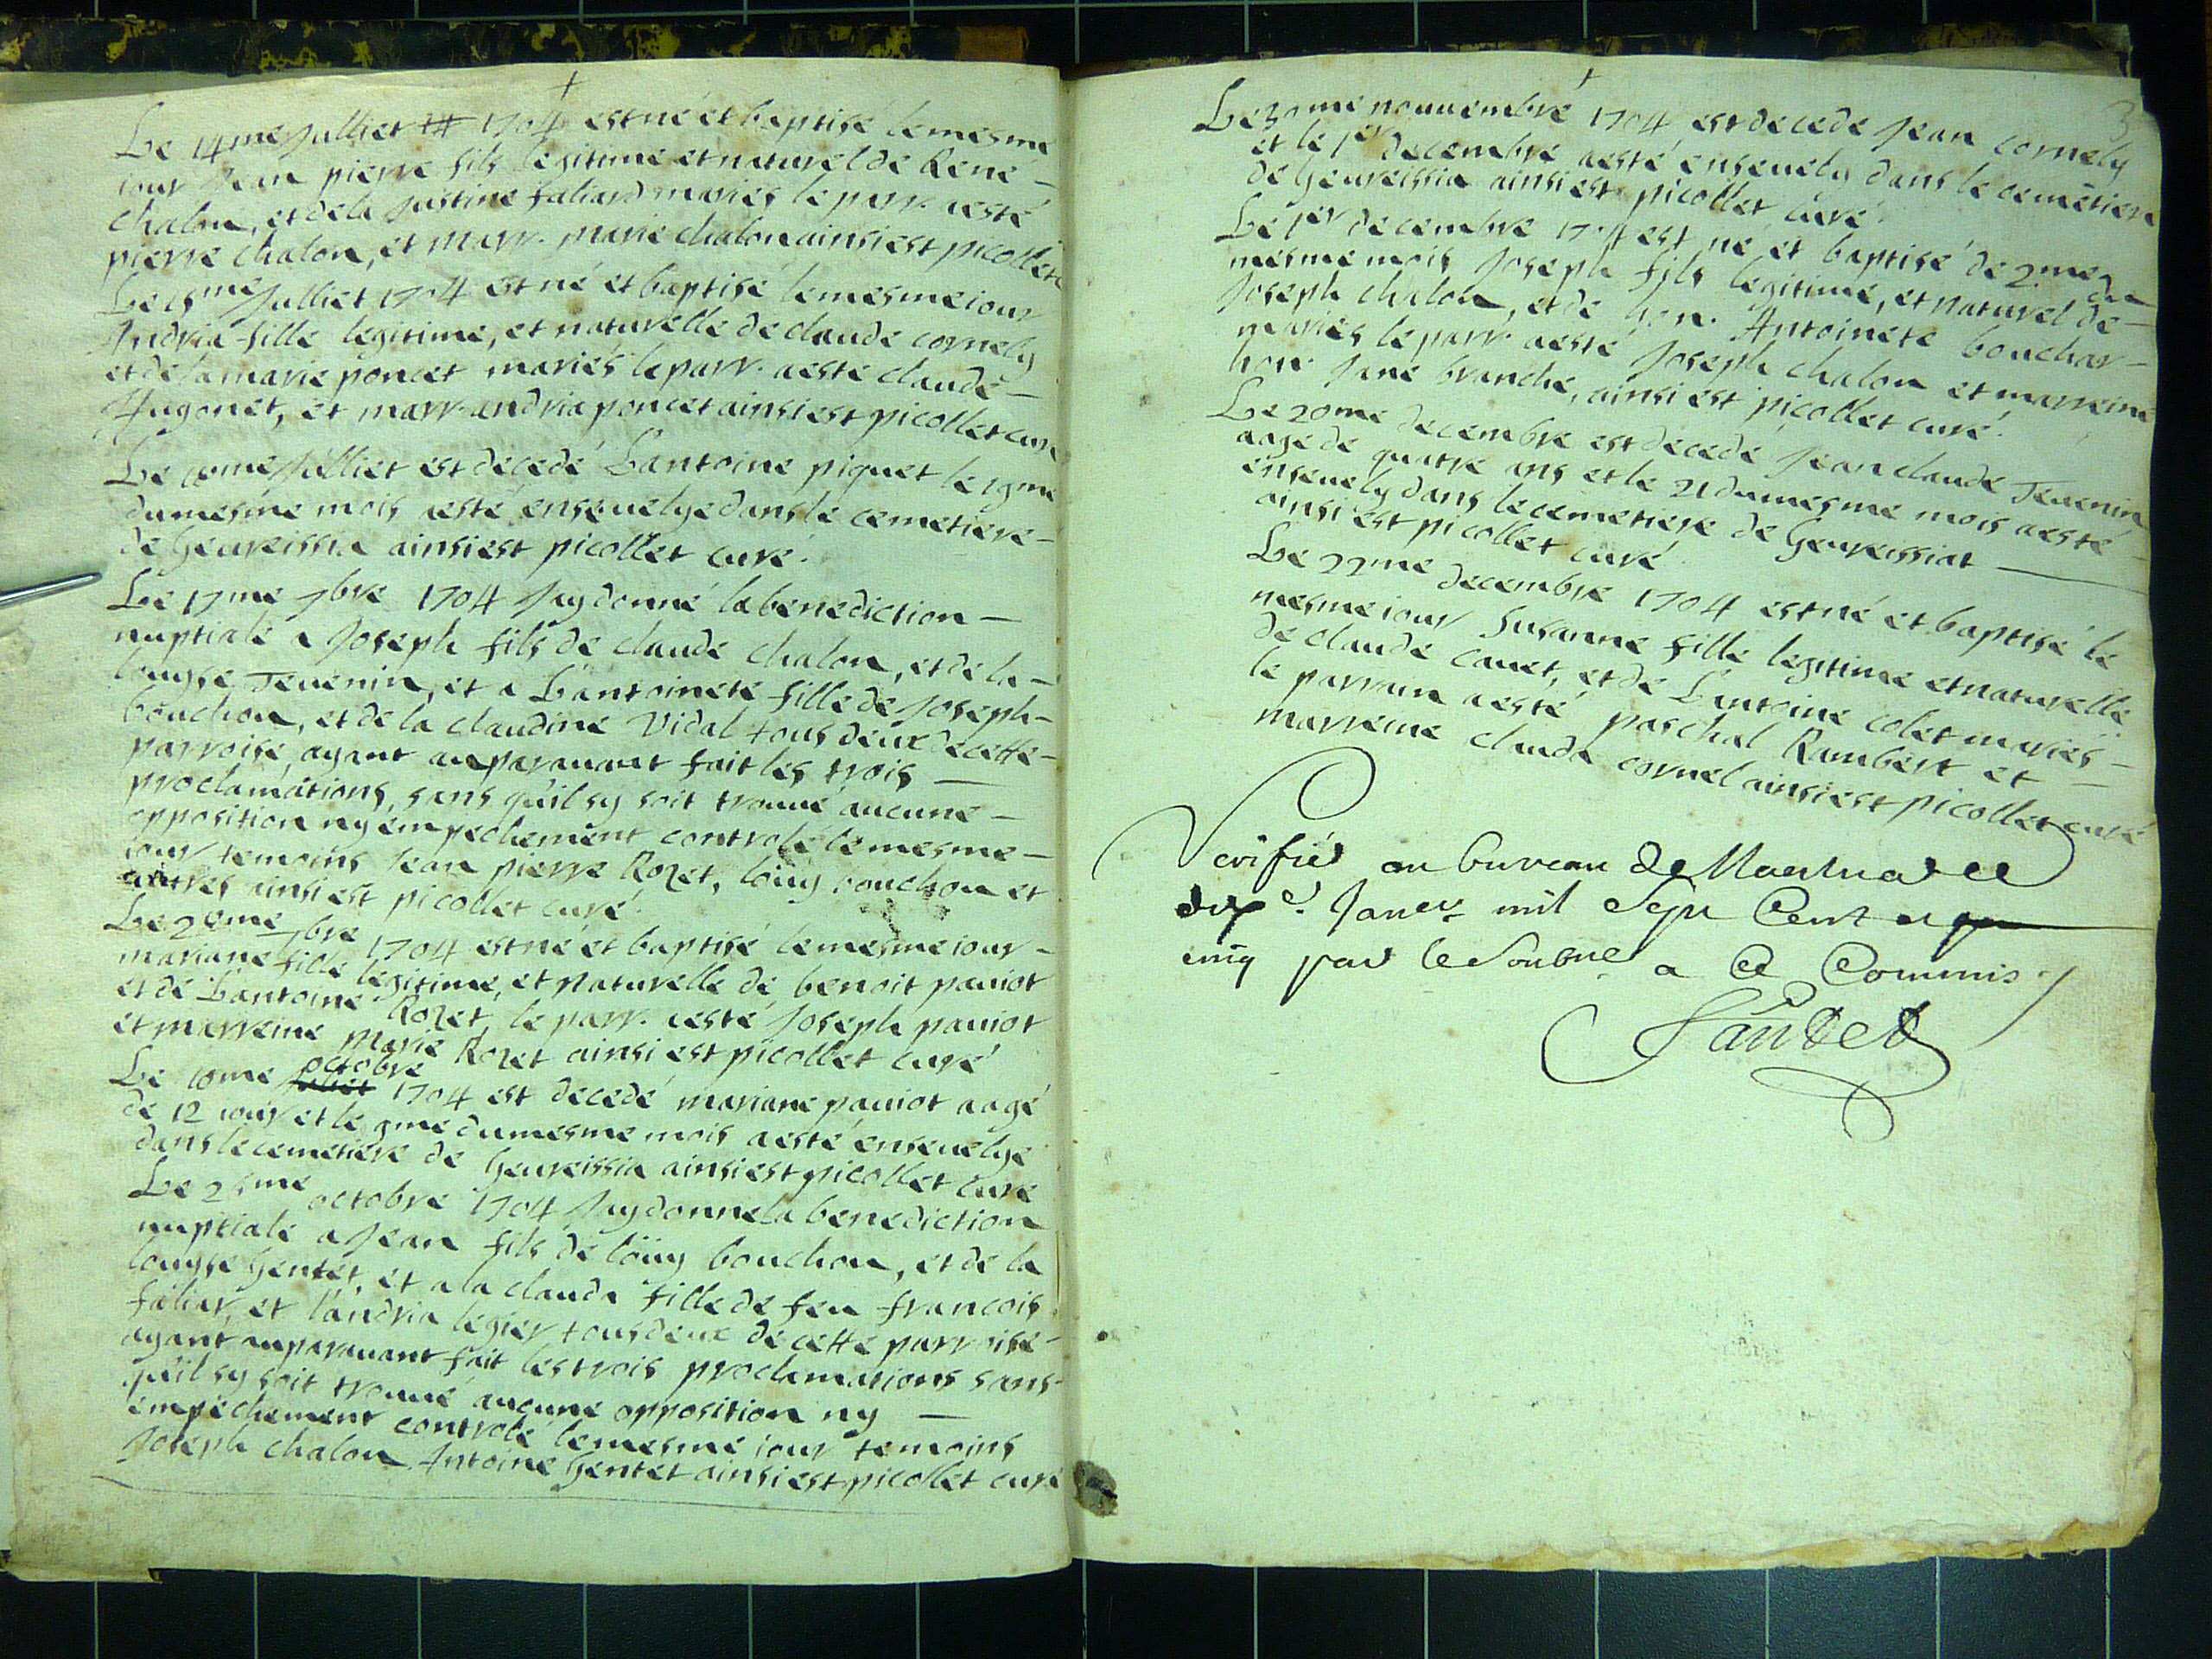 Le 14me Julliet 1704 est né et baptisé le mesme
iour Jean pierre fils legitime et naturel de René
chalon, et de la Justine faliard mariés le parr. aesté
pierre chalon, et marr. marie chalon ainsi est picollet
Le 15me Julliet 1704 est né et baptisé le mesme iour
Andria fille legitime, et naturelle de claude cornely
et de la marie poncet mariés le parr. aesté claude
Hugonet, et marr. andria poncet ainsi est picollet curé
Le Julliet est decedé L'antoine piquet le 19me
du mesme mois aesté enseuelye dans le cemetiere
de Geureissia ainsi est picollet curé.
Le 17me 7bre 1704 Jay donné la benediction
nuptiale a Joseph fils de claude chalon, et de la
louyse Teuenin, et a L'antoinete fille de Joseph
bouchon, et de la claudine Vidal tous deux de cette
parroise, ayant auparauant fait les trois
proclamations, sans qu'il sy soit trouué aucune
opposition ny empechement controlé le mesme
iour temoins Jean pierre Rozet, loüy bouchon et
autres ainsi est picollet curé.
Le 28me 7bre 1704 est né et baptisé le mesme iour
mariane fille legitime, et naturelle de benoit pauiot
et de L'antoine Rozet, le parr. aesté Joseph pauiot
et marreine marie Rozet ainsi est picollet curé
Le 10me octobre 1704 est decedé mariane pauiot aagé
de 12 iours et le du mesme mois aesté enseuelye
dans le cemetiere de Geureissia ainsi est picollet curé
Le 25me octobre 1704 Jay donne la benediction
nuptiale a Jean fils de loüy bouchon, et de la
louyse Gentet, et a la clauda fille de feu francois
faliar, et l'andria legier tous deux de cette parroise
ayant auparauant fait les trois proclamations sans
qu'il sy soit trouué aucune opposition ny
empechement controlé le mesme iour temoins
Joseph chalon Antoine Gentet ainsi est picollet curé
3
Le 30me nouuembre 1704 est decede Jean cornely
et le 1er decembre aesté enseuely dans le cemetiere
de Geureissia ainsi est picollet curé.
Le 1er decembre 1704 est né et baptisé de 2me du
mesme mois Joseph fils legitime, et naturel de
Joseph chalon, et de hon. Antoinete bouchar
mariés le parr. aesté Joseph chalon et marreine
hon. Jane branche, ainsi est picollet curé.
Le 20me decembre est decedé Jean claude Teuenin
aage de quatre ans et le 21 du mesme mois aesté
enseuely dans le cemetiere de Geureissiat
ainsi est picollet curé
Le 22me decembre 1704 est né et baptisé le
mesme iour Susanne fille legitime et naturelle
de claude Cauet, et de L'antoine colet mariés
le parrain aesté paschal Rambert et
marreine clauda cornel ainsi est picollet curé
Verifié au bureau de Nantua ce
dixe. Janer mil Sept Cent
cinq par le Soubne a ce Commis